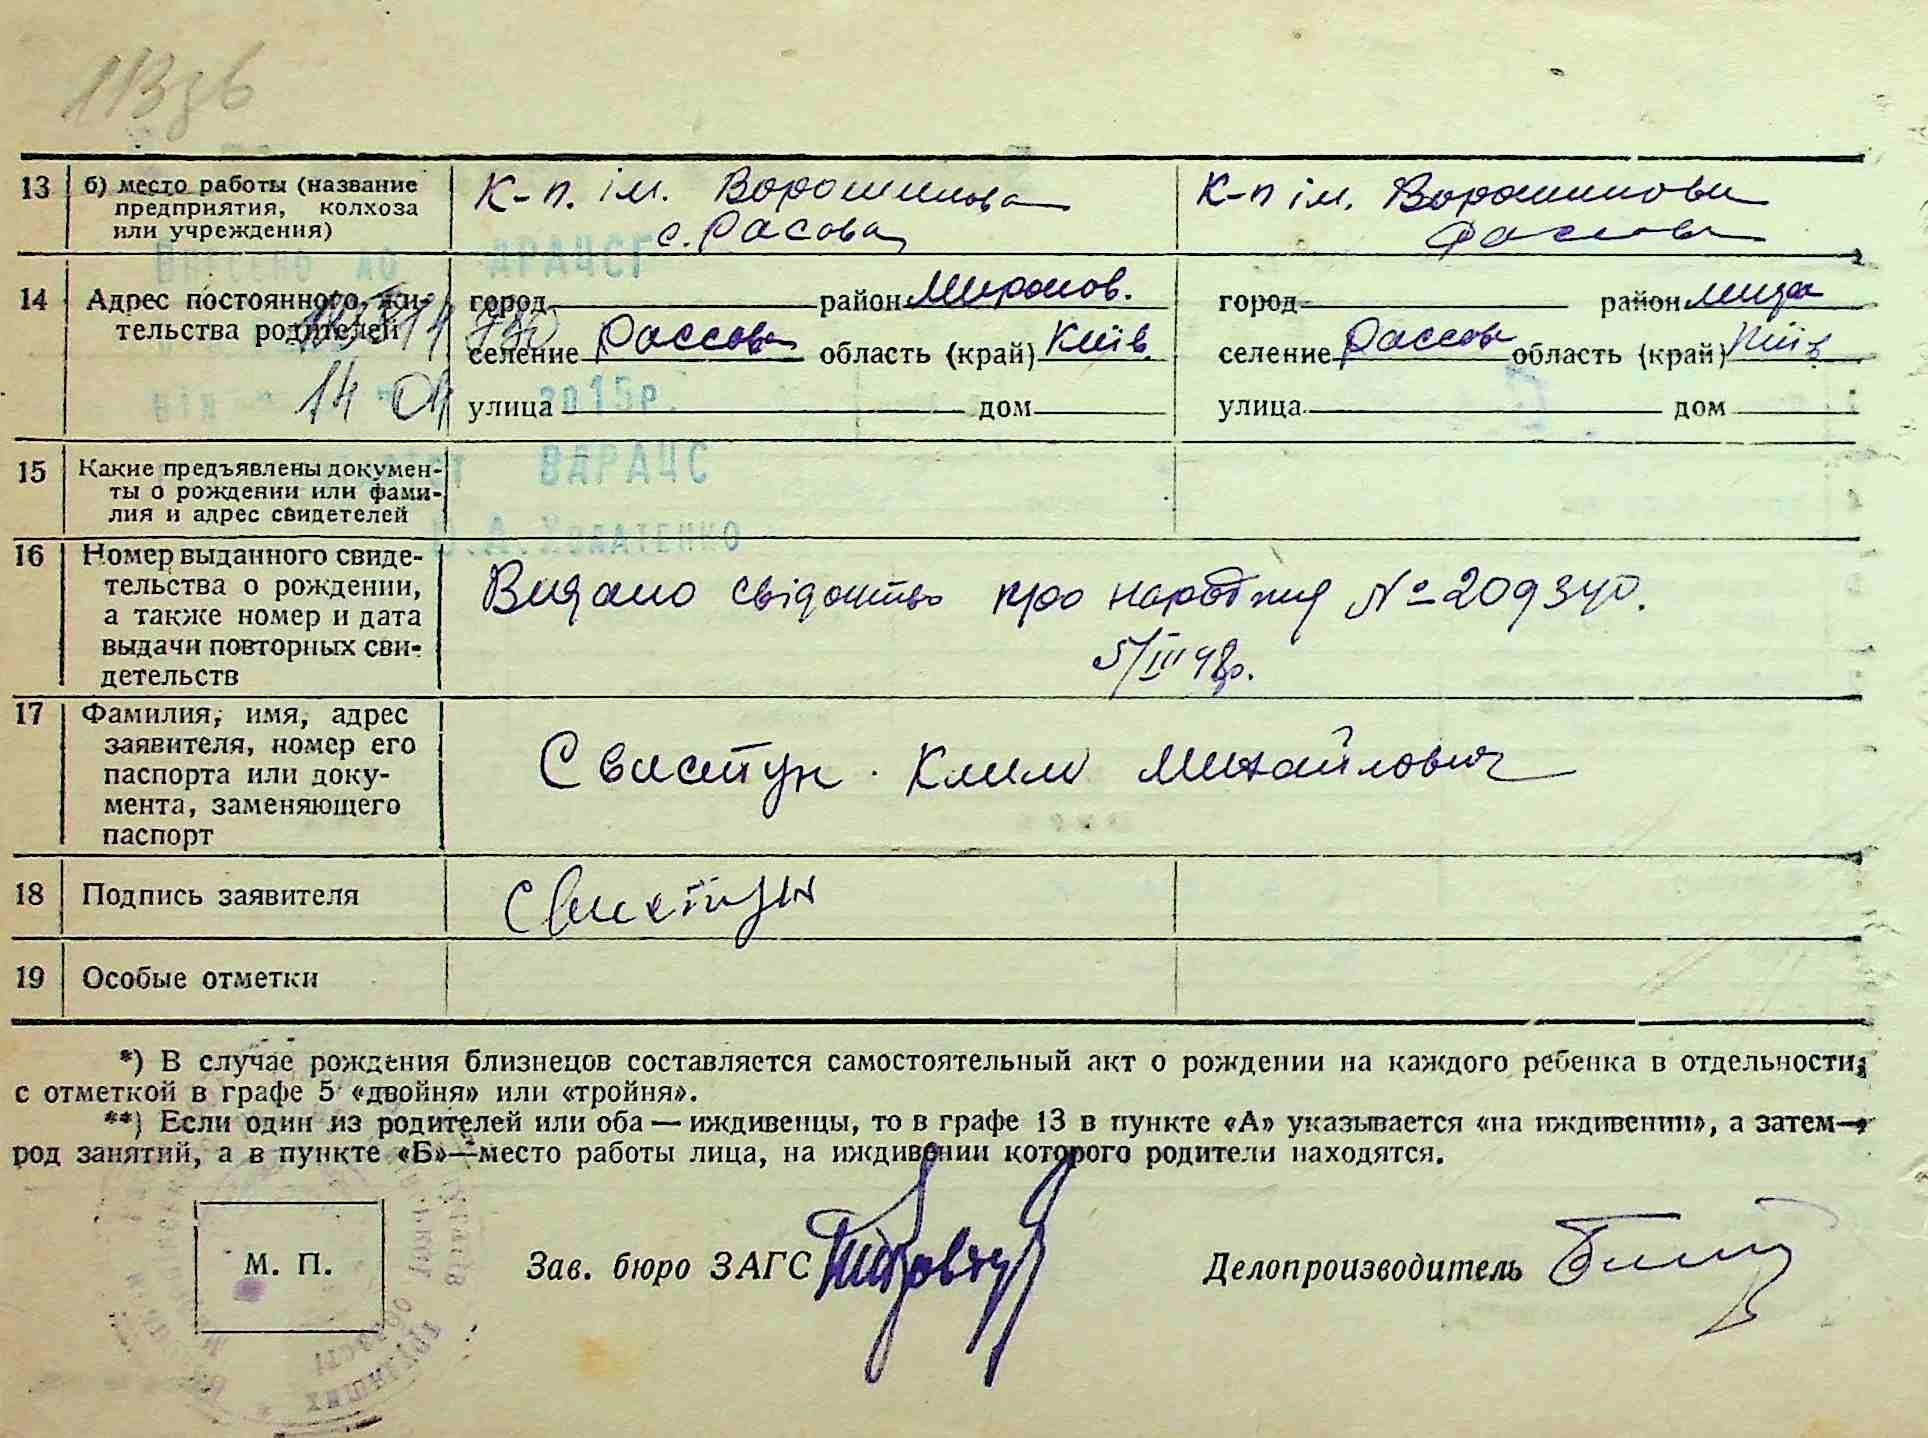 13 б) место работы (название К-п. ім. Ворошилова К-п ім. Ворошилова
предприятия, колхоза с. Расова Расова
или учреждения)
Внесено до ДРАЦСГ
14 Адрес постоянного жи- город район Миронов. город район
тельства родителей селение Россова область (край) Київ селение Россов область (край) Київ
14 04 2015р.
улица дом улица дом
15 Какие предъявлены докумен-
ты о рождении или фами-
лия и адрес свидетелей
ВДРАЦС
16 Номер выданного свиде-
тельства о рождении, Видано свідоцтво про народження № 209340.
а также номер и дата
выдачи повторных сви- 5/III 48р.
детельств
17 Фамилия, имя, адрес
заявителя, номер его Свистун Клим Михайлович
паспорта или доку-
мента, заменяющего
паспорт
18 Подпись заявителя Свистун
19 Особые отметки
*) В случае рождения близнецов составляется самостоятельный акт о рождении на каждого ребенка в отдельности,
с отметкой в графе 5 «двойня» или «тройня».
**) Если один из родителей или оба — иждивенцы, то в графе 13 в пункте «А» указывается «на иждивении», а затем—
род занятий, а в пункте «Б»—место работы лица, на иждивении которого родители находятся.
М. П. Зав. бюро ЗАГС Делопроизводитель